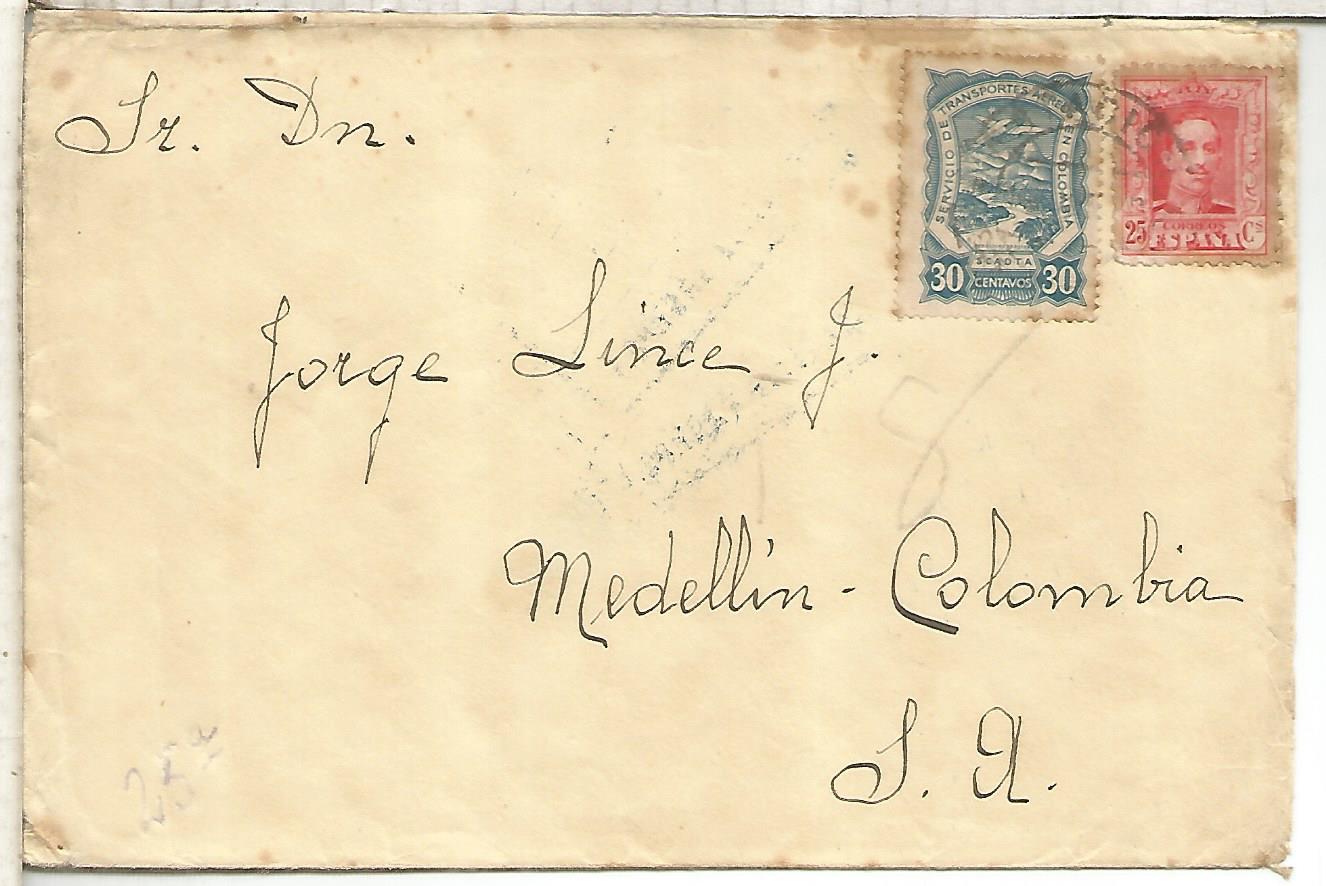 Sr. Dn.
SERVICIO DE TRANSPORTES AEREOS EN COLOMBIA
SCADTA
30 CENTAVOS 30
CORREOS
25 ESPAÑA Cs
Jorge Lince J.
Medellín - Colombia
S. A.